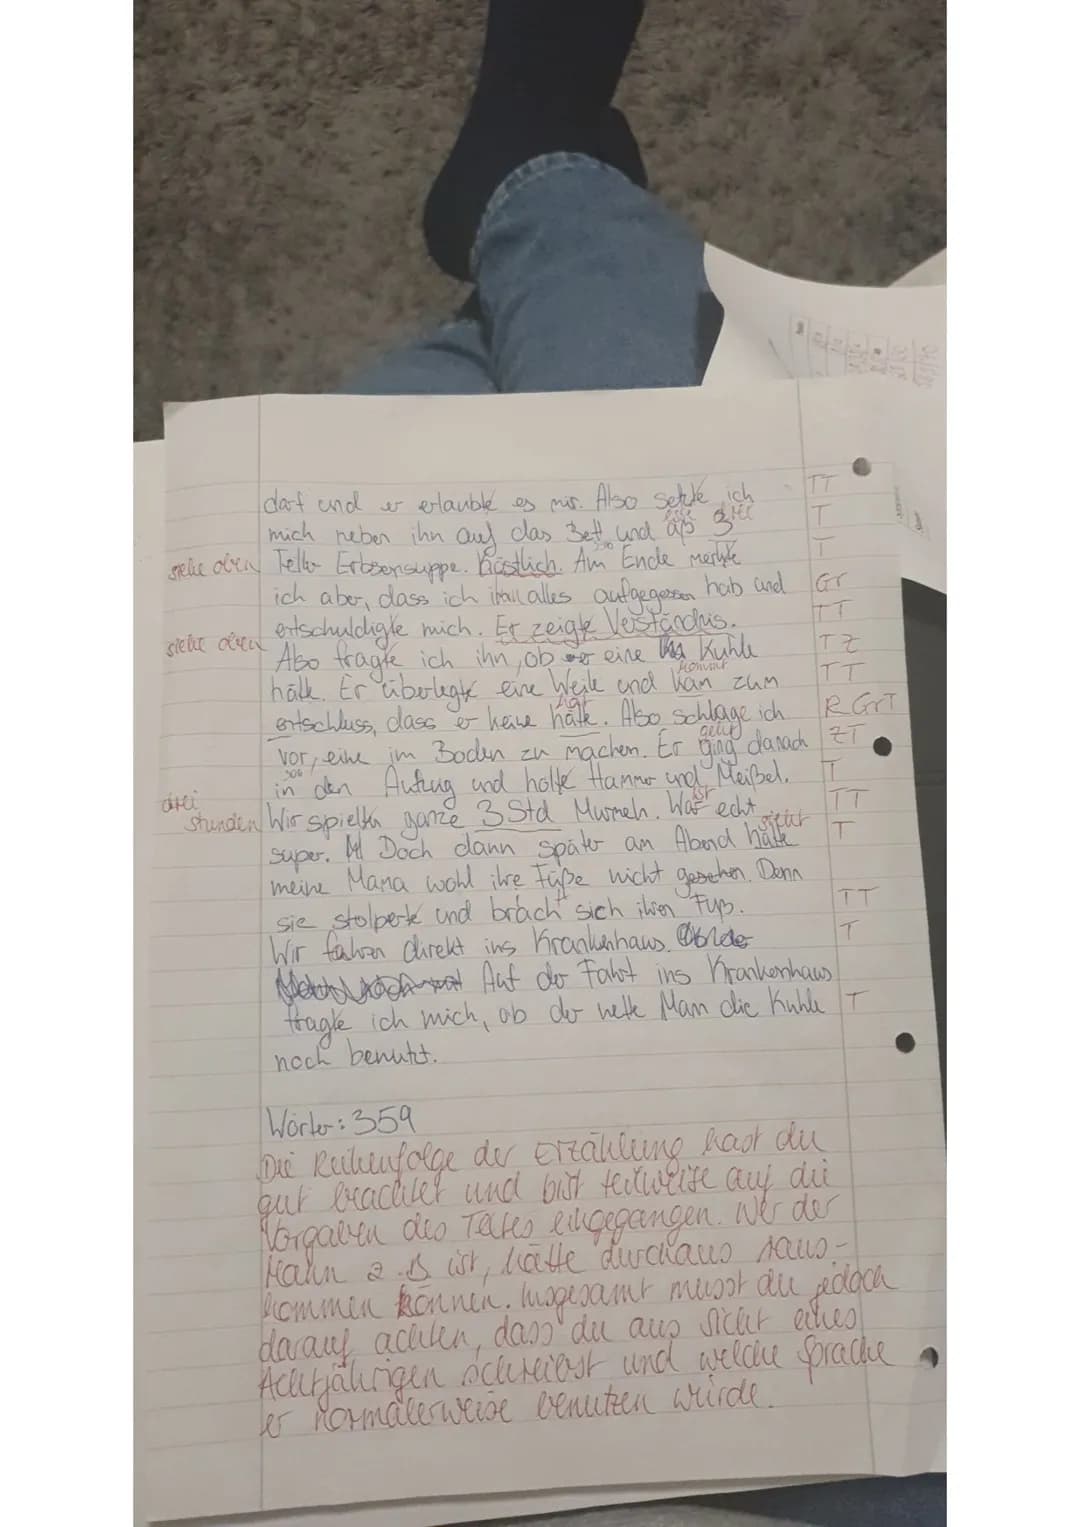 darf und er erlaubte es mir. Also setzte ich TT
mich neben ihn auf das Bett und aß 3 T
siehe oben Teller Erbsensuppe. Köstlich. Am Ende merkte T
ich aber, dass ich alles aufgegessen hab und Gr
siehe oben entschuldigte mich. Er zeigte Verständnis. TT
Also fragte ich ihn, ob er eine Kuhle TZ
kommt
hätte. Er überlegte eine Weile und kam zum TT
hat
entschluss, dass er keine hätte. Also schlage ich R GrT
geht
vor, eine im Boden zu machen. Er ging danach ZT
in den Aufzug und holte Hammer und Meißel. T
drei
ist
stunden Wir spielten ganze 3 Std Murmeln. War echt TT
sieht
super. Doch dann später am Abend hätte T
meine Mama wohl ihre Füße nicht gesehen. Denn
sie stolperte und brach sich ihren Fuß. TT
Wir fahren direkt ins Krankenhaus. T
Auf der Fahrt ins Krankenhaus
fragte ich mich, ob der nette Man die Kuhle T
noch benutzt.
Wörter: 359
Die Reihenfolge der Erzählung hast du
gut beachtet und bist teilweise auf die
Vorgaben des Textes eingegangen. Wer der
Mann z.B ist, hätte durchaus raus-
kommen können. Insgesamt musst du jedoch
darauf achten, dass du aus Sicht eines
Achtjährigen schreibst und welche Sprache
er normalerweise benutzen würde.